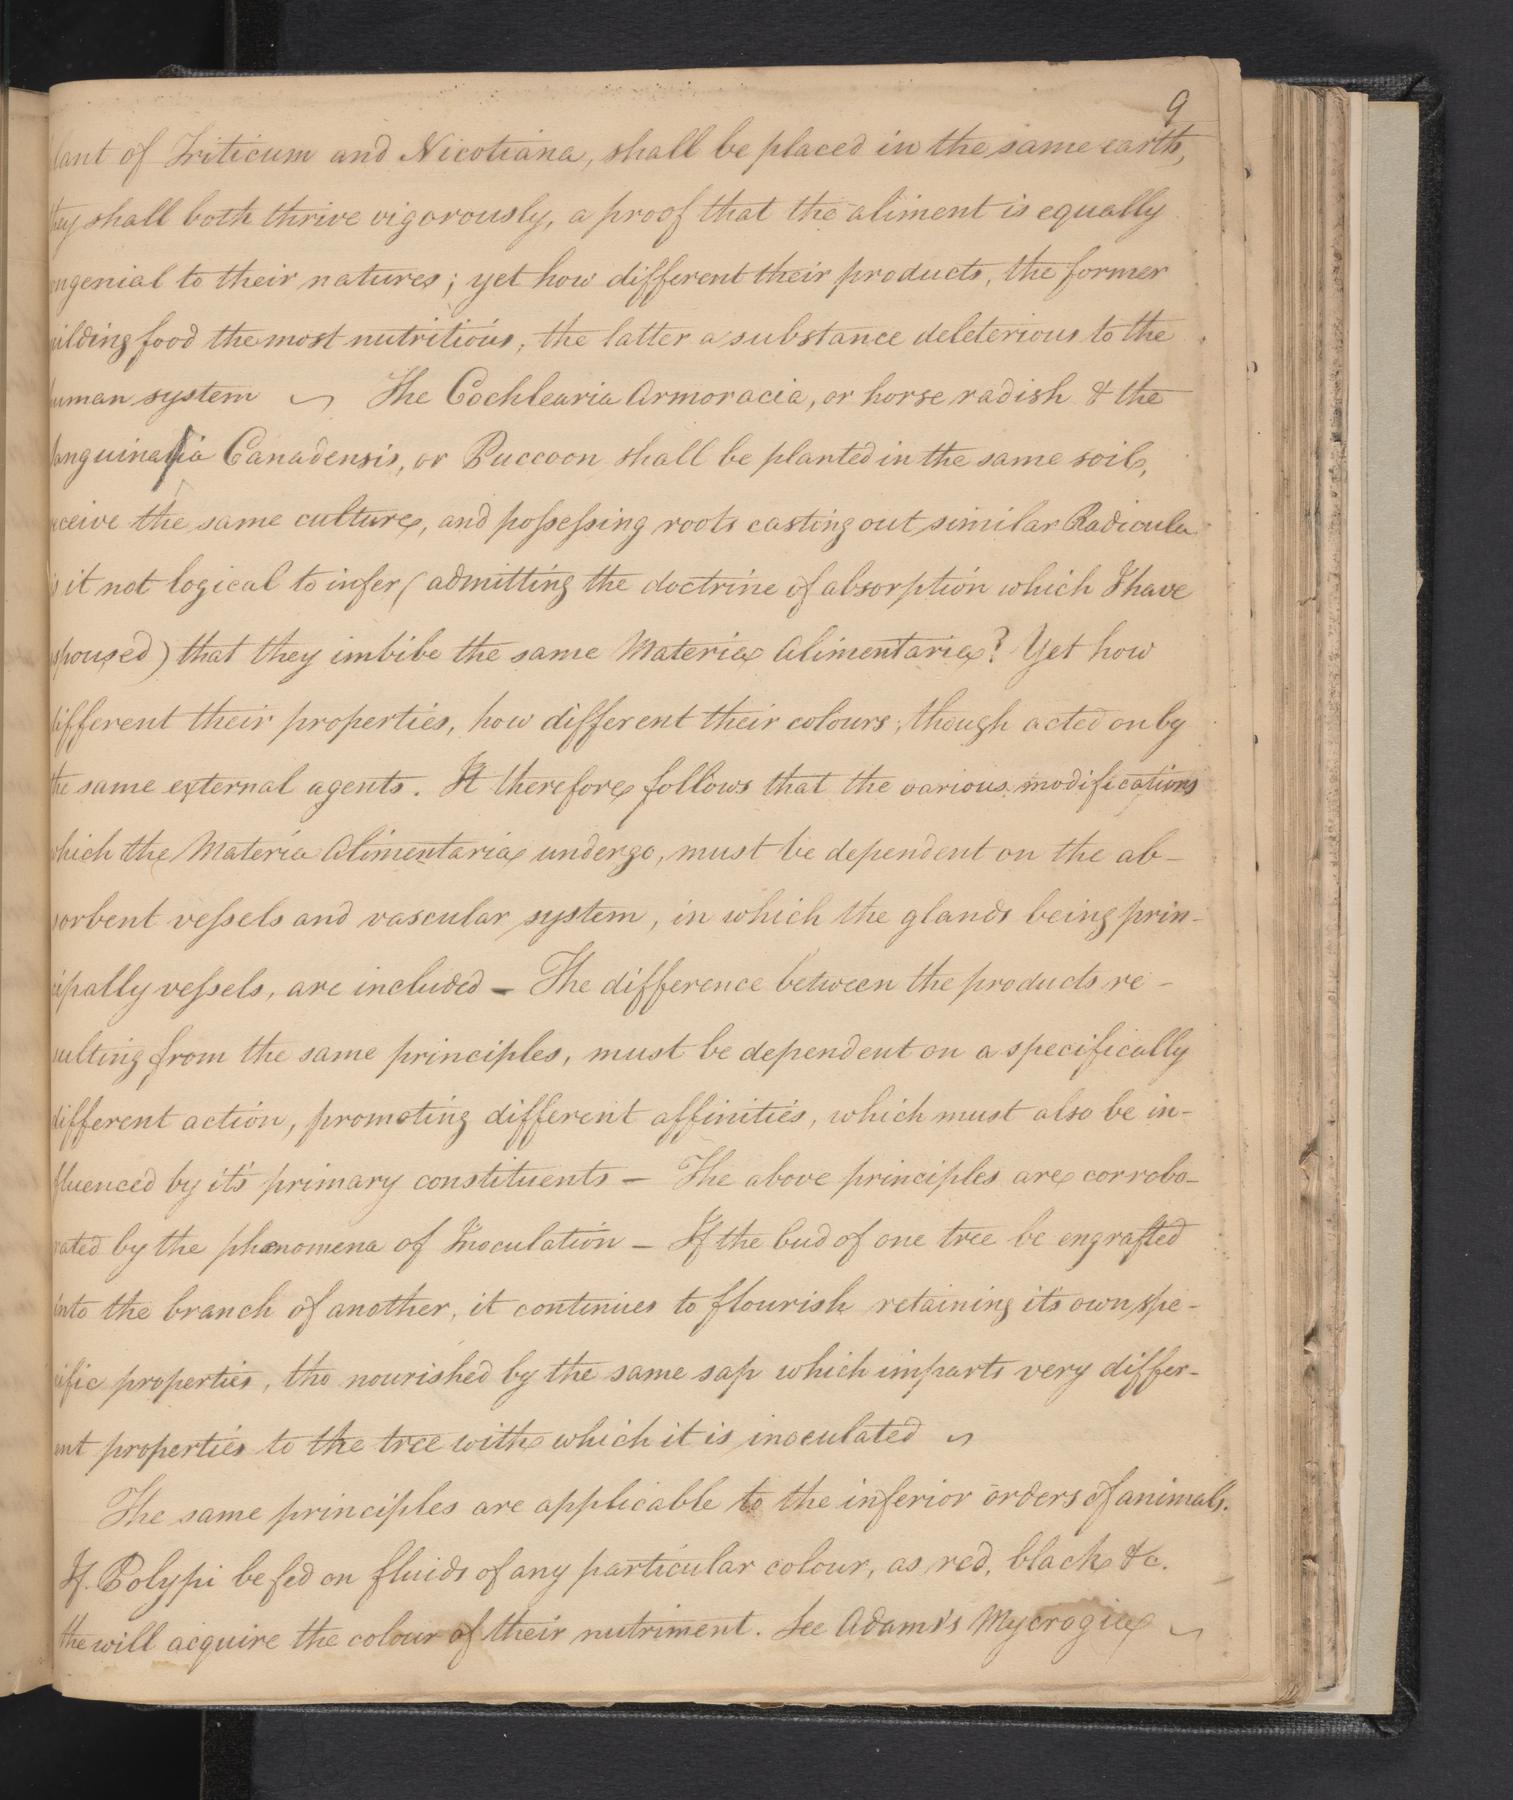 9
lant of Triticum and Nicotiana, shall be placed in the same earth,
hey shall both thrive vigorously, a proof that the aliment is equally
ngenial to their natures; yet how different their products, the former
ilding food the most nutritious, the latter a substance deleterious to the
uman system ~ The Cochlearia Armoracia, or horse radish & the
anguinaria Canadensis, or Puccoon shall be planted in the same soil,
ceive the same culture, and possessing roots casting out similar Radicula
is it not logical to infer (admitting the doctrine of absorption which I have
spoused) that they imbibe the same Materia Alimentaria? Yet how
different their properties, how different their colours, though acted on by
the same external agents. It therefore follows that the various modifications
which the Materia Alimentaria undergo, must be dependent on the ab-
sorbent vessels and vascular system, in which the glands being prin-
cipally vessels, are included - The difference between the products re-
sulting from the same principles, must be dependent on a specifically
different action, promoting different affinities, which must also be in-
fluenced by it's primary constituents - The above principles are corrobo-
rated by the phœnomena of Inoculation - If the bud of one tree be engrafted
into the branch of another, it continues to flourish retaining it's own spe-
cific properties, tho nourished by the same sap which imparts very differ-
ent properties to the tree with which it is inoculated ~
The same principles are applicable to the inferior orders of animals.
If Polypi be fed on fluids of any particular colour, as red, black &c.
the will acquire the colour of their nutriment. See Adams's Mycrogia ~